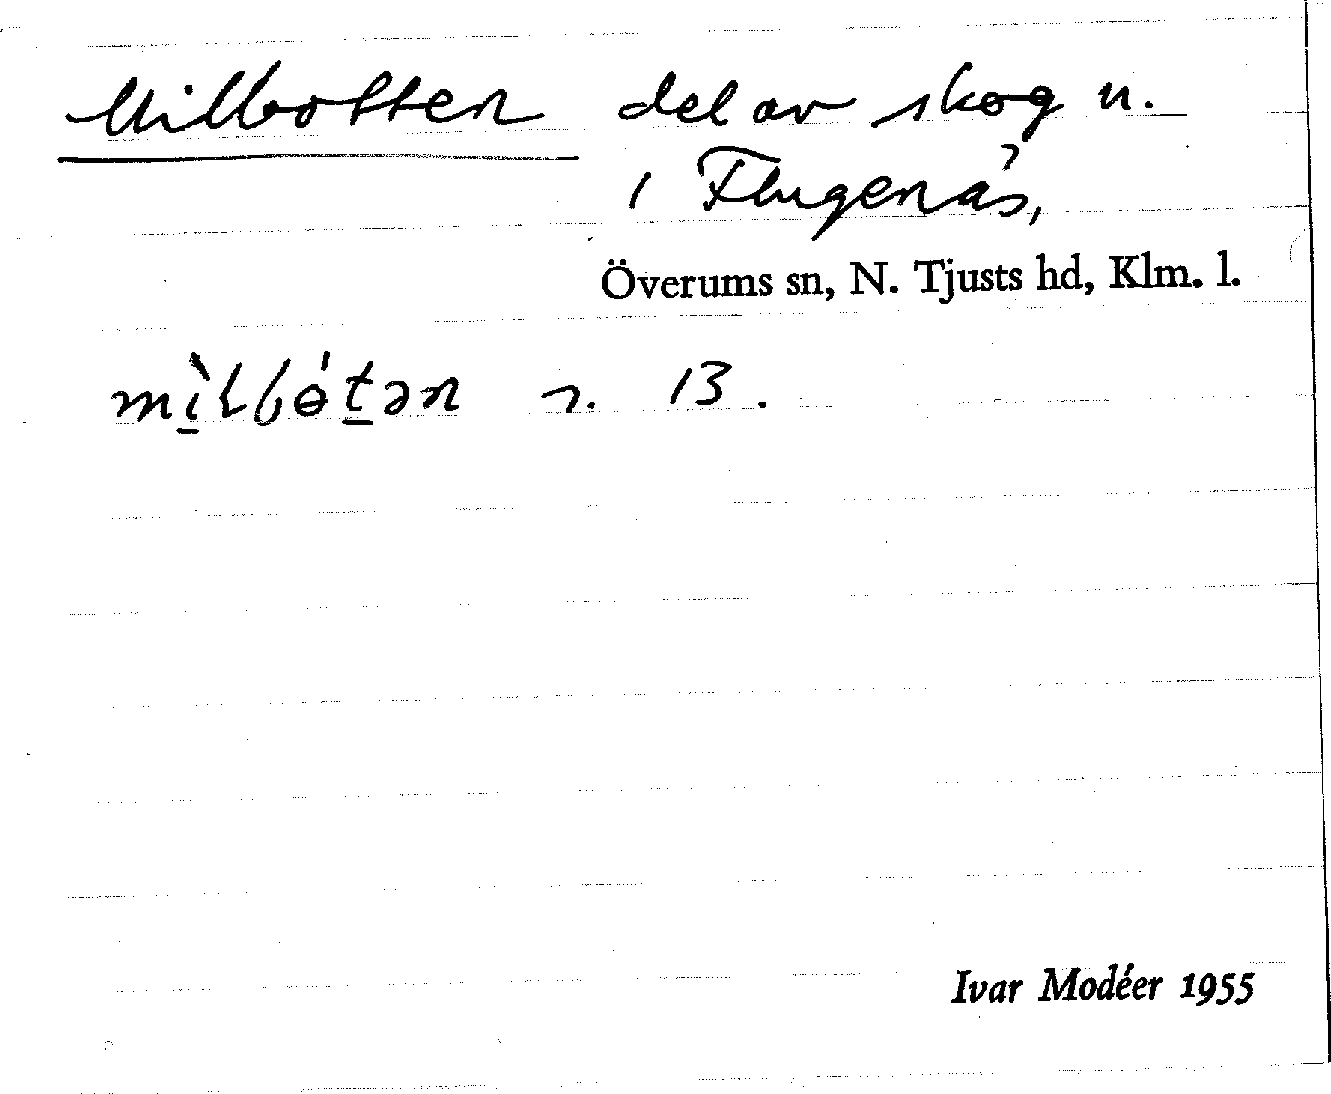 Milbotten del av skog n.
i Flugenäs,
Överums sn, N. Tjusts hd, Klm. l.
mìlbótən n. 13.
Ivar Modéer 1955